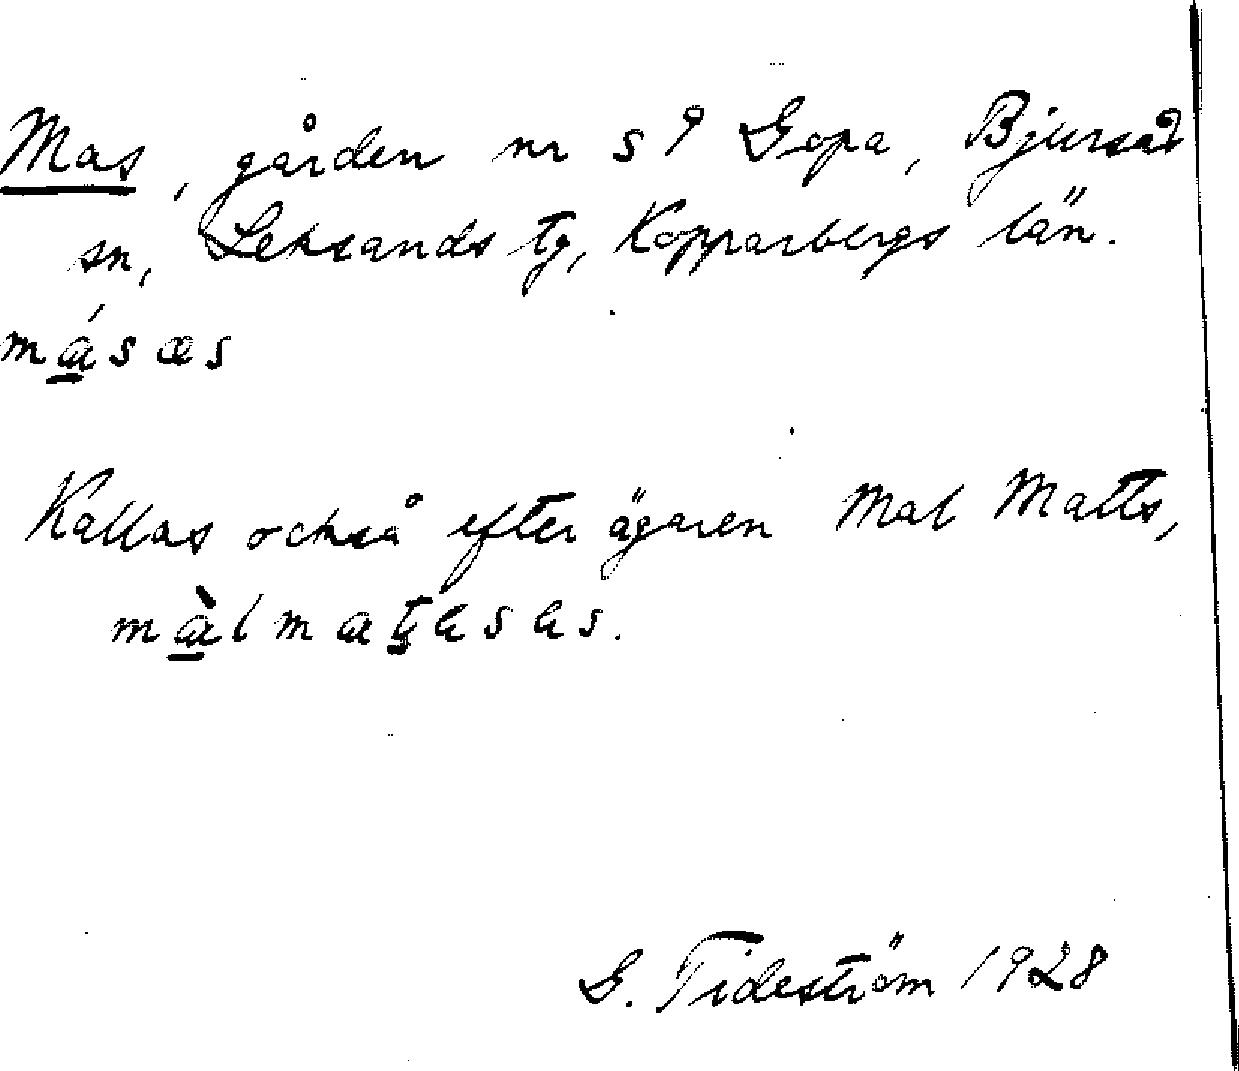 Mas, gården nr 59 Gopa, Bjursås
sn, Leksands tg, Kopparbergs län.
másæs
Kallas också efter ägaren Mal Matts,